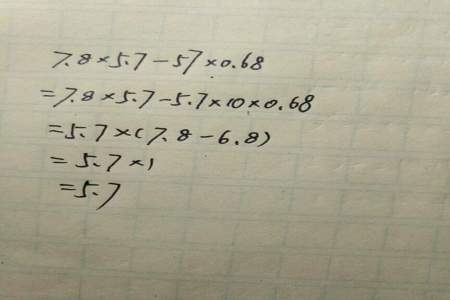 7.8×5.7-57×0.68
=7.8×5.7-5.7×10×0.68
=5.7×(7.8-6.8)
=5.7×1
=5.7